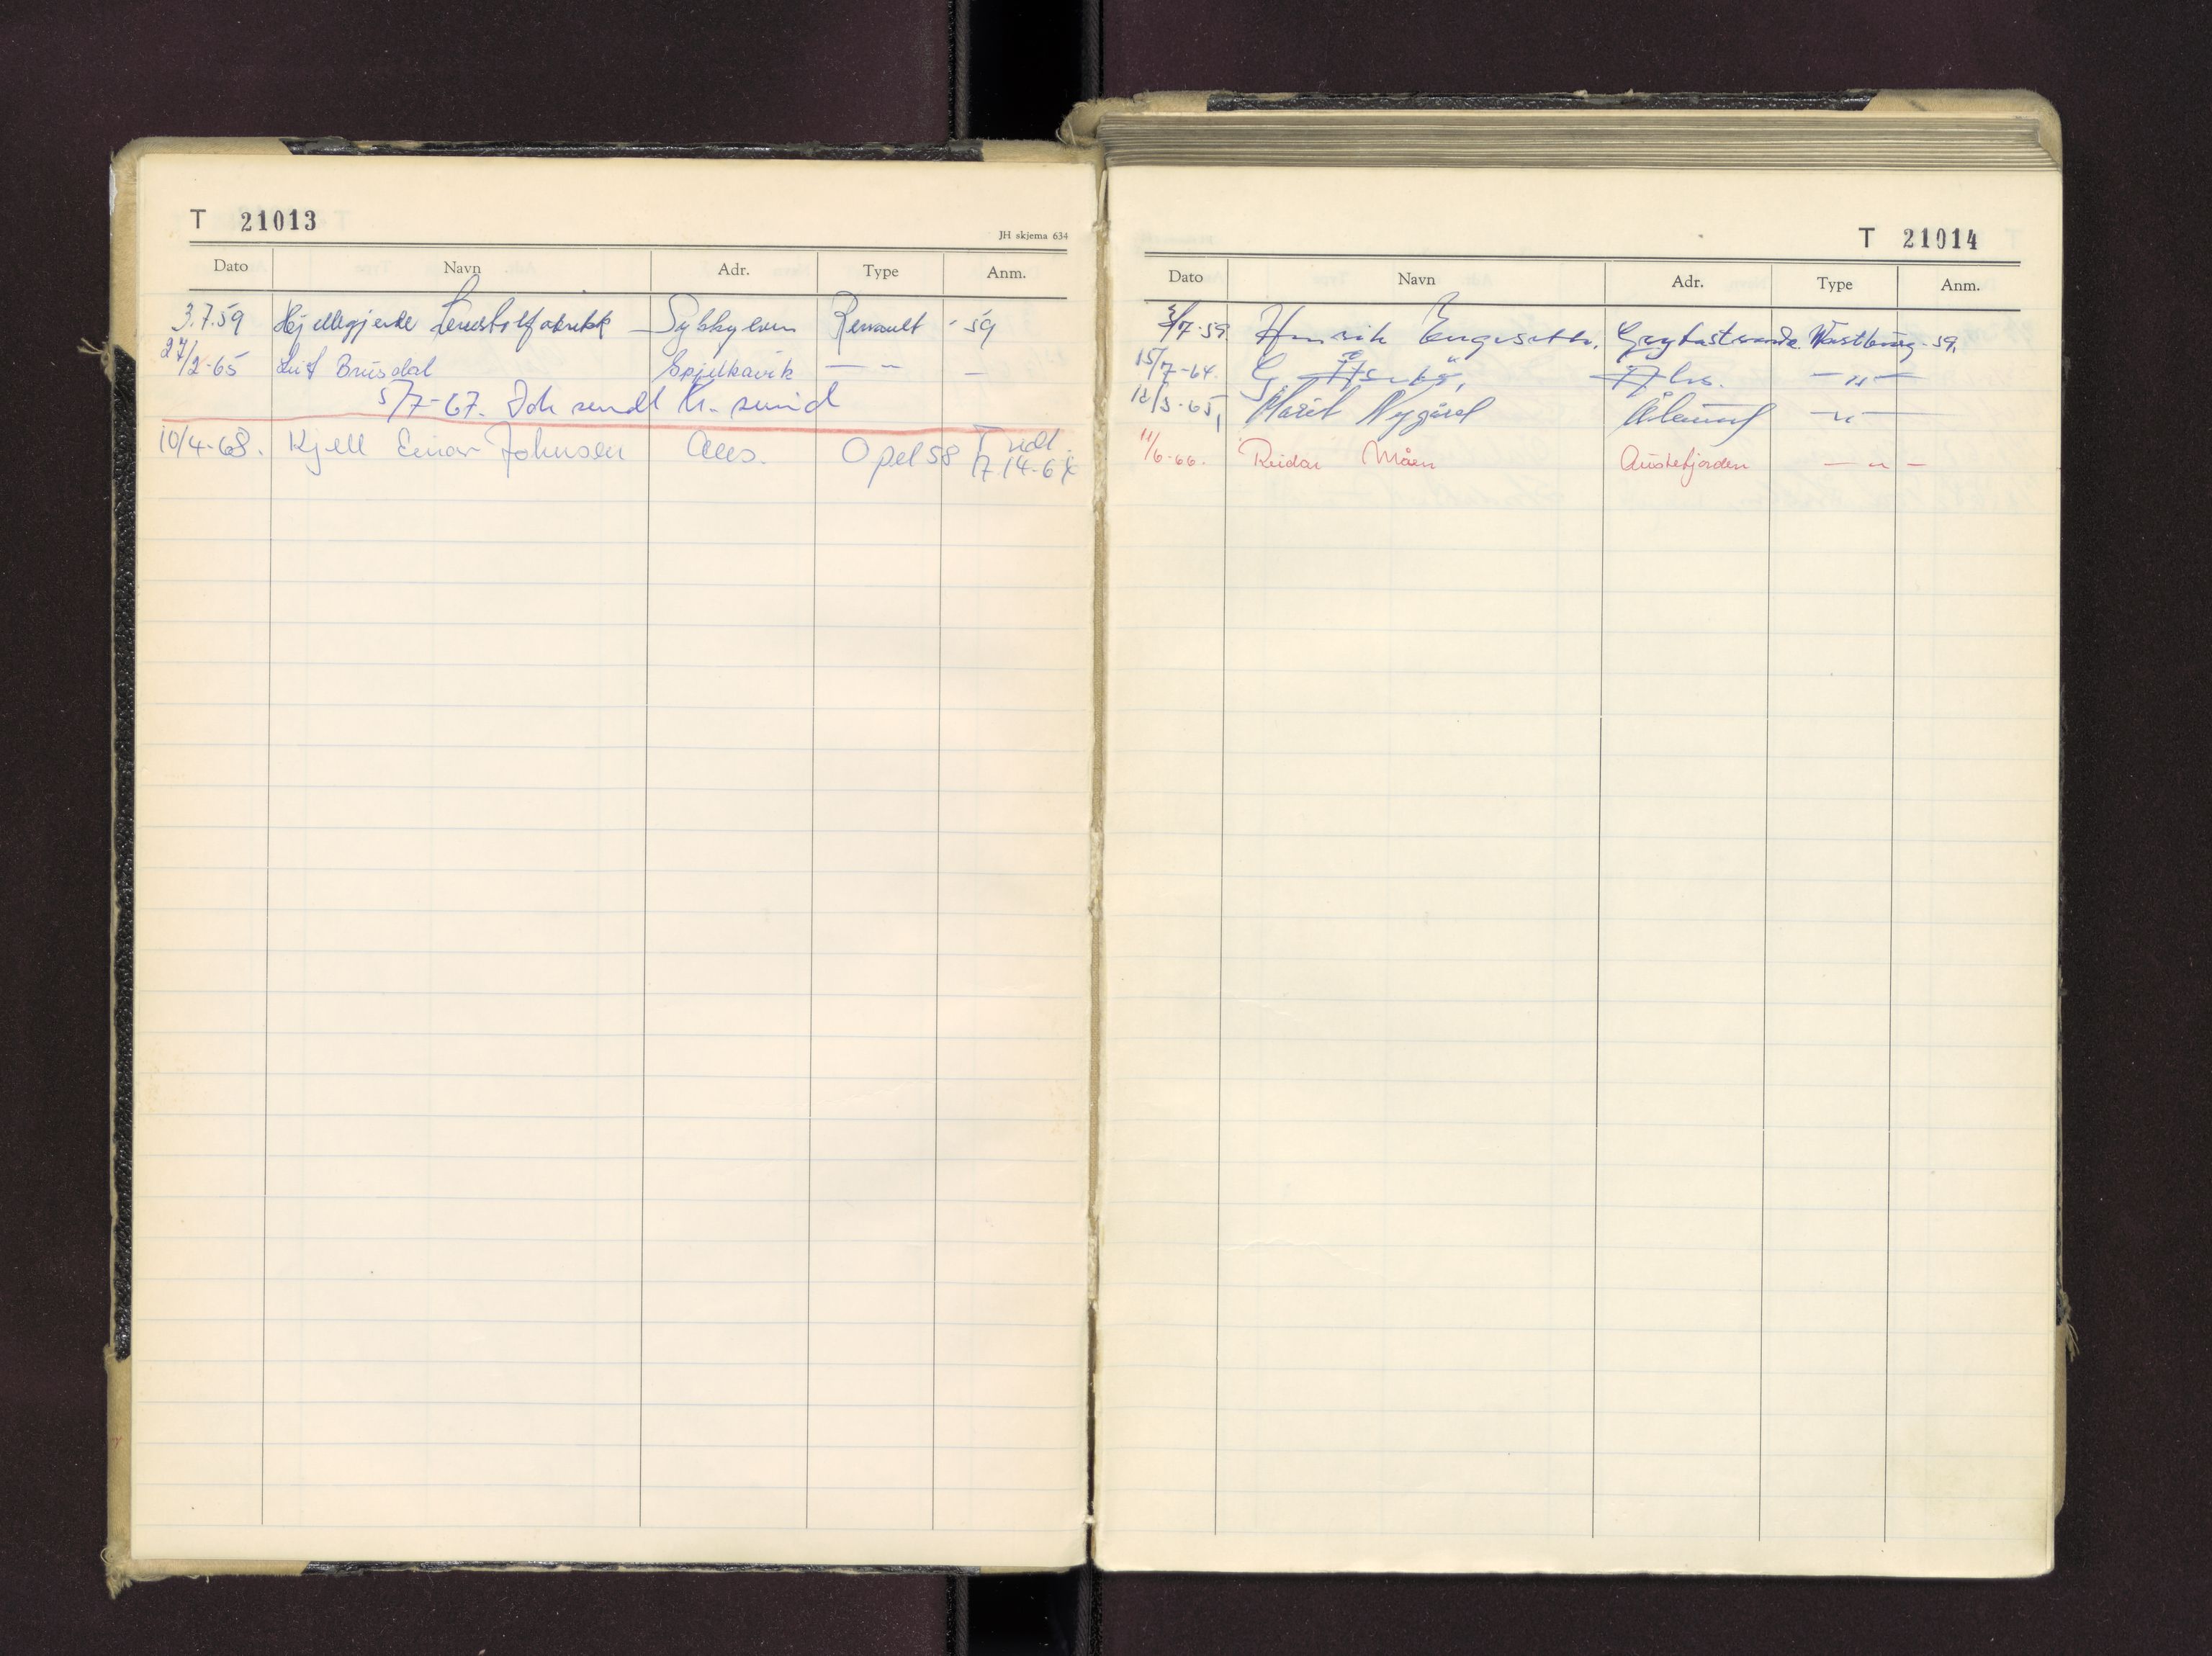 T 21013
JH skjema 634
Dato Navn Adr. Type Anm.
3.7.59 Hjellegjerde Lenestolfabrikk Sykkylven Renault - 59
27/2-65 Leif Brusdal Spjelkavik — " — —
5/7-67. Dok sendt Kr. sund
10/4-68. Kjell Einar Johnsen Ales. Opel 58 T. udl. 17.14-6
T 21014
Dato Navn Adr. Type Anm.
3/7-59. Henrik Engeseth. Gryttastranda. Wartburg -59.
15/7-64. G. Åls. — " —
12/3-65, Marit Nygård Ålesund — " —
11/6-66. Reidar Måen Austefjorden — " —